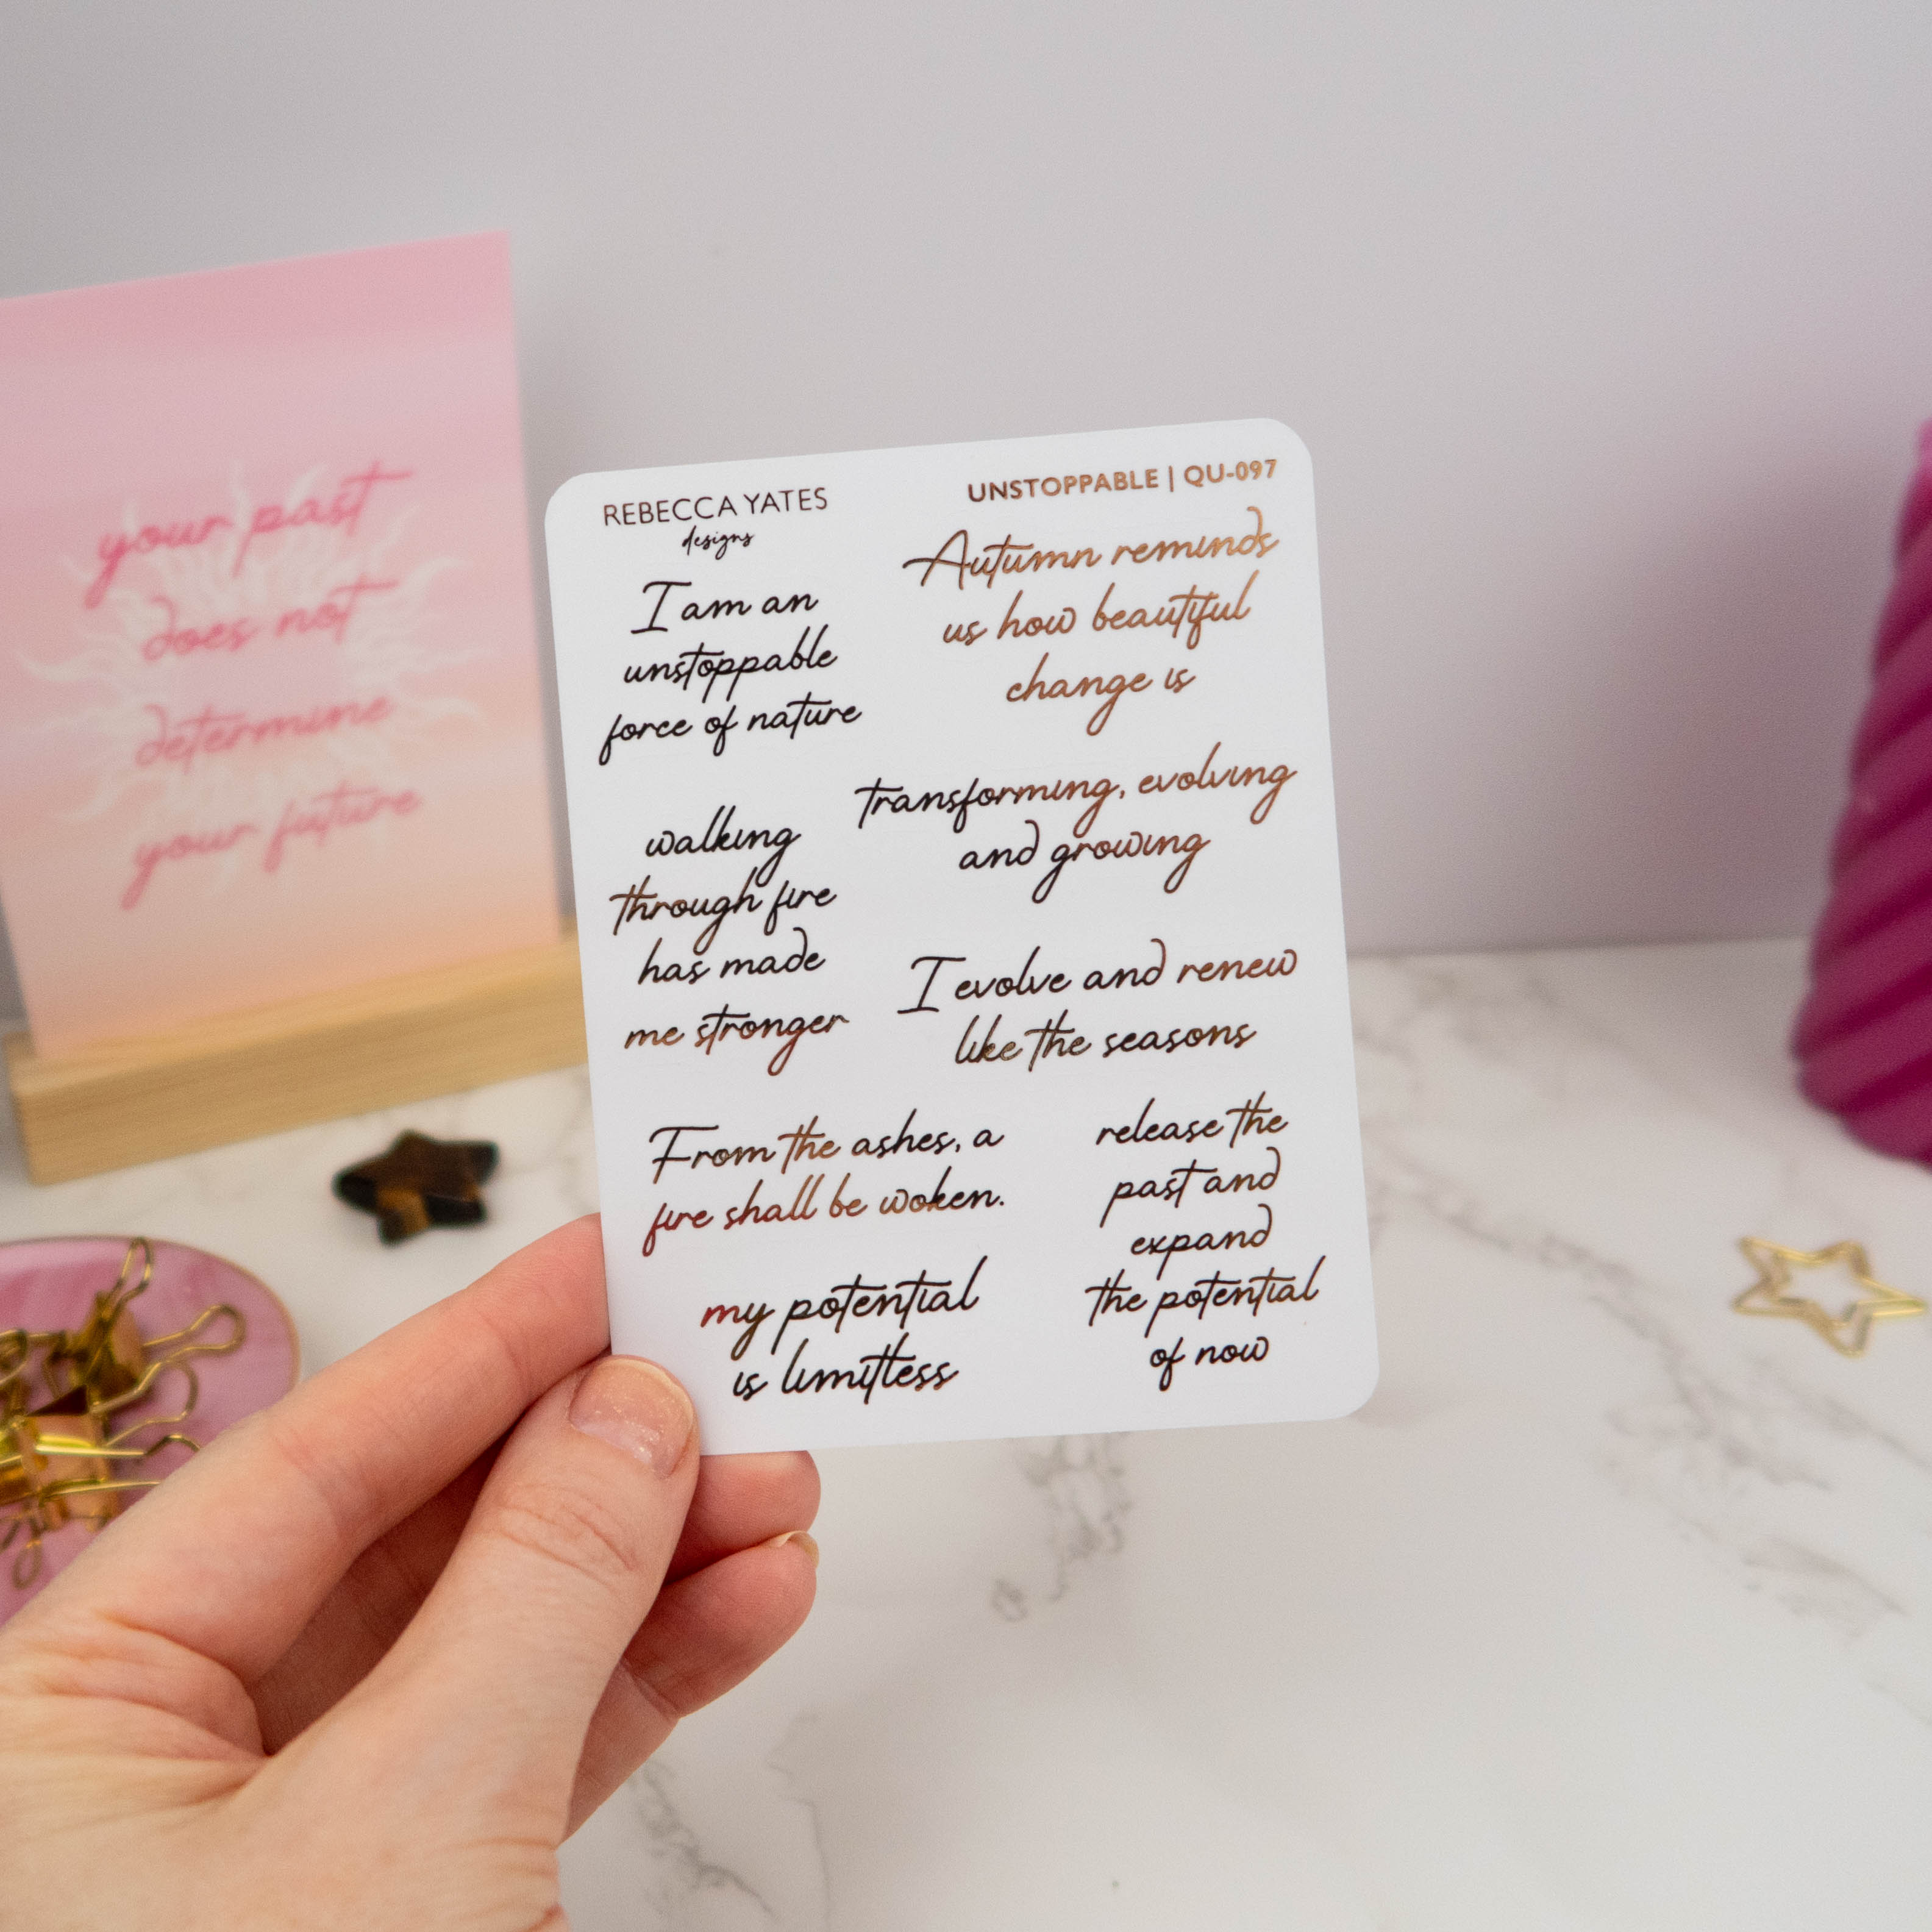 your past
does not
determine
your future
REBECCA YATES
designs
UNSTOPPABLE | QU-097
I am an
unstoppable
force of nature
Autumn reminds
us how beautiful
change is
walking
through fire
has made
me stronger
transforming, evolving
and growing
I evolve and renew
like the seasons
From the ashes, a
fire shall be woken.
release the
past and
expand
the potential
of now
my potential
is limitless